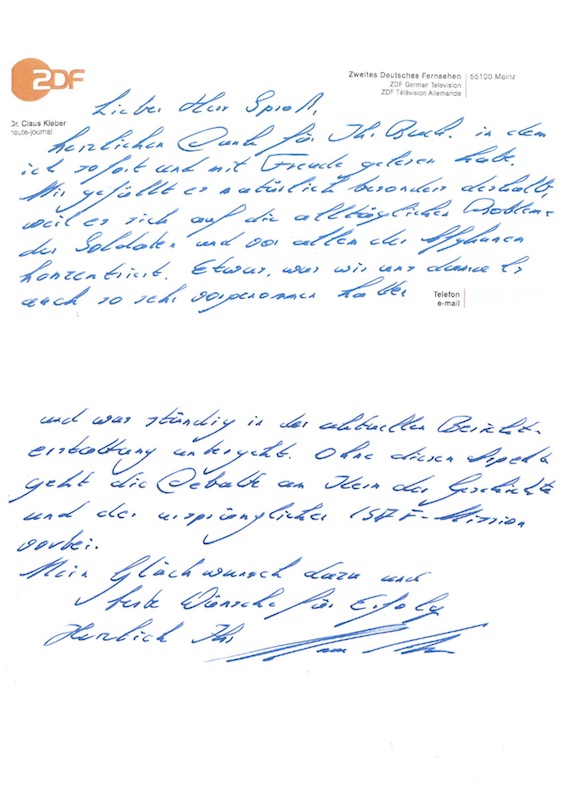 ZDF
Zweites Deutsches Fernsehen
ZDF German Television
ZDF Télévision Allemande
55100 Mainz
Dr. Claus Kleber
heute-journal
Lieber Herr Sproß,
herzlichen Dank für Ihr Buch. in dem
ich sofort und mit Freude gelesen habe.
Mir gefällt es natürlich besonders deshalb,
weil es sich auf die alltäglichen Probleme
der Soldaten und vor allem der Afghanen
konzentriert. Etwas, was wir uns damals
auch so sehr vorgenommen hatten
Telefon
e-mail
und was ständig in der aktuellen Bericht-
erstattung untergeht. Ohne diesen Aspekt
geht die Debatte am Kern der Geschichte
und der ursprünglichen ISAF-Mission
vorbei.
Mein Glückwunsch dazu und
beste Wünsche für Erfolg
Herzlich Ihr